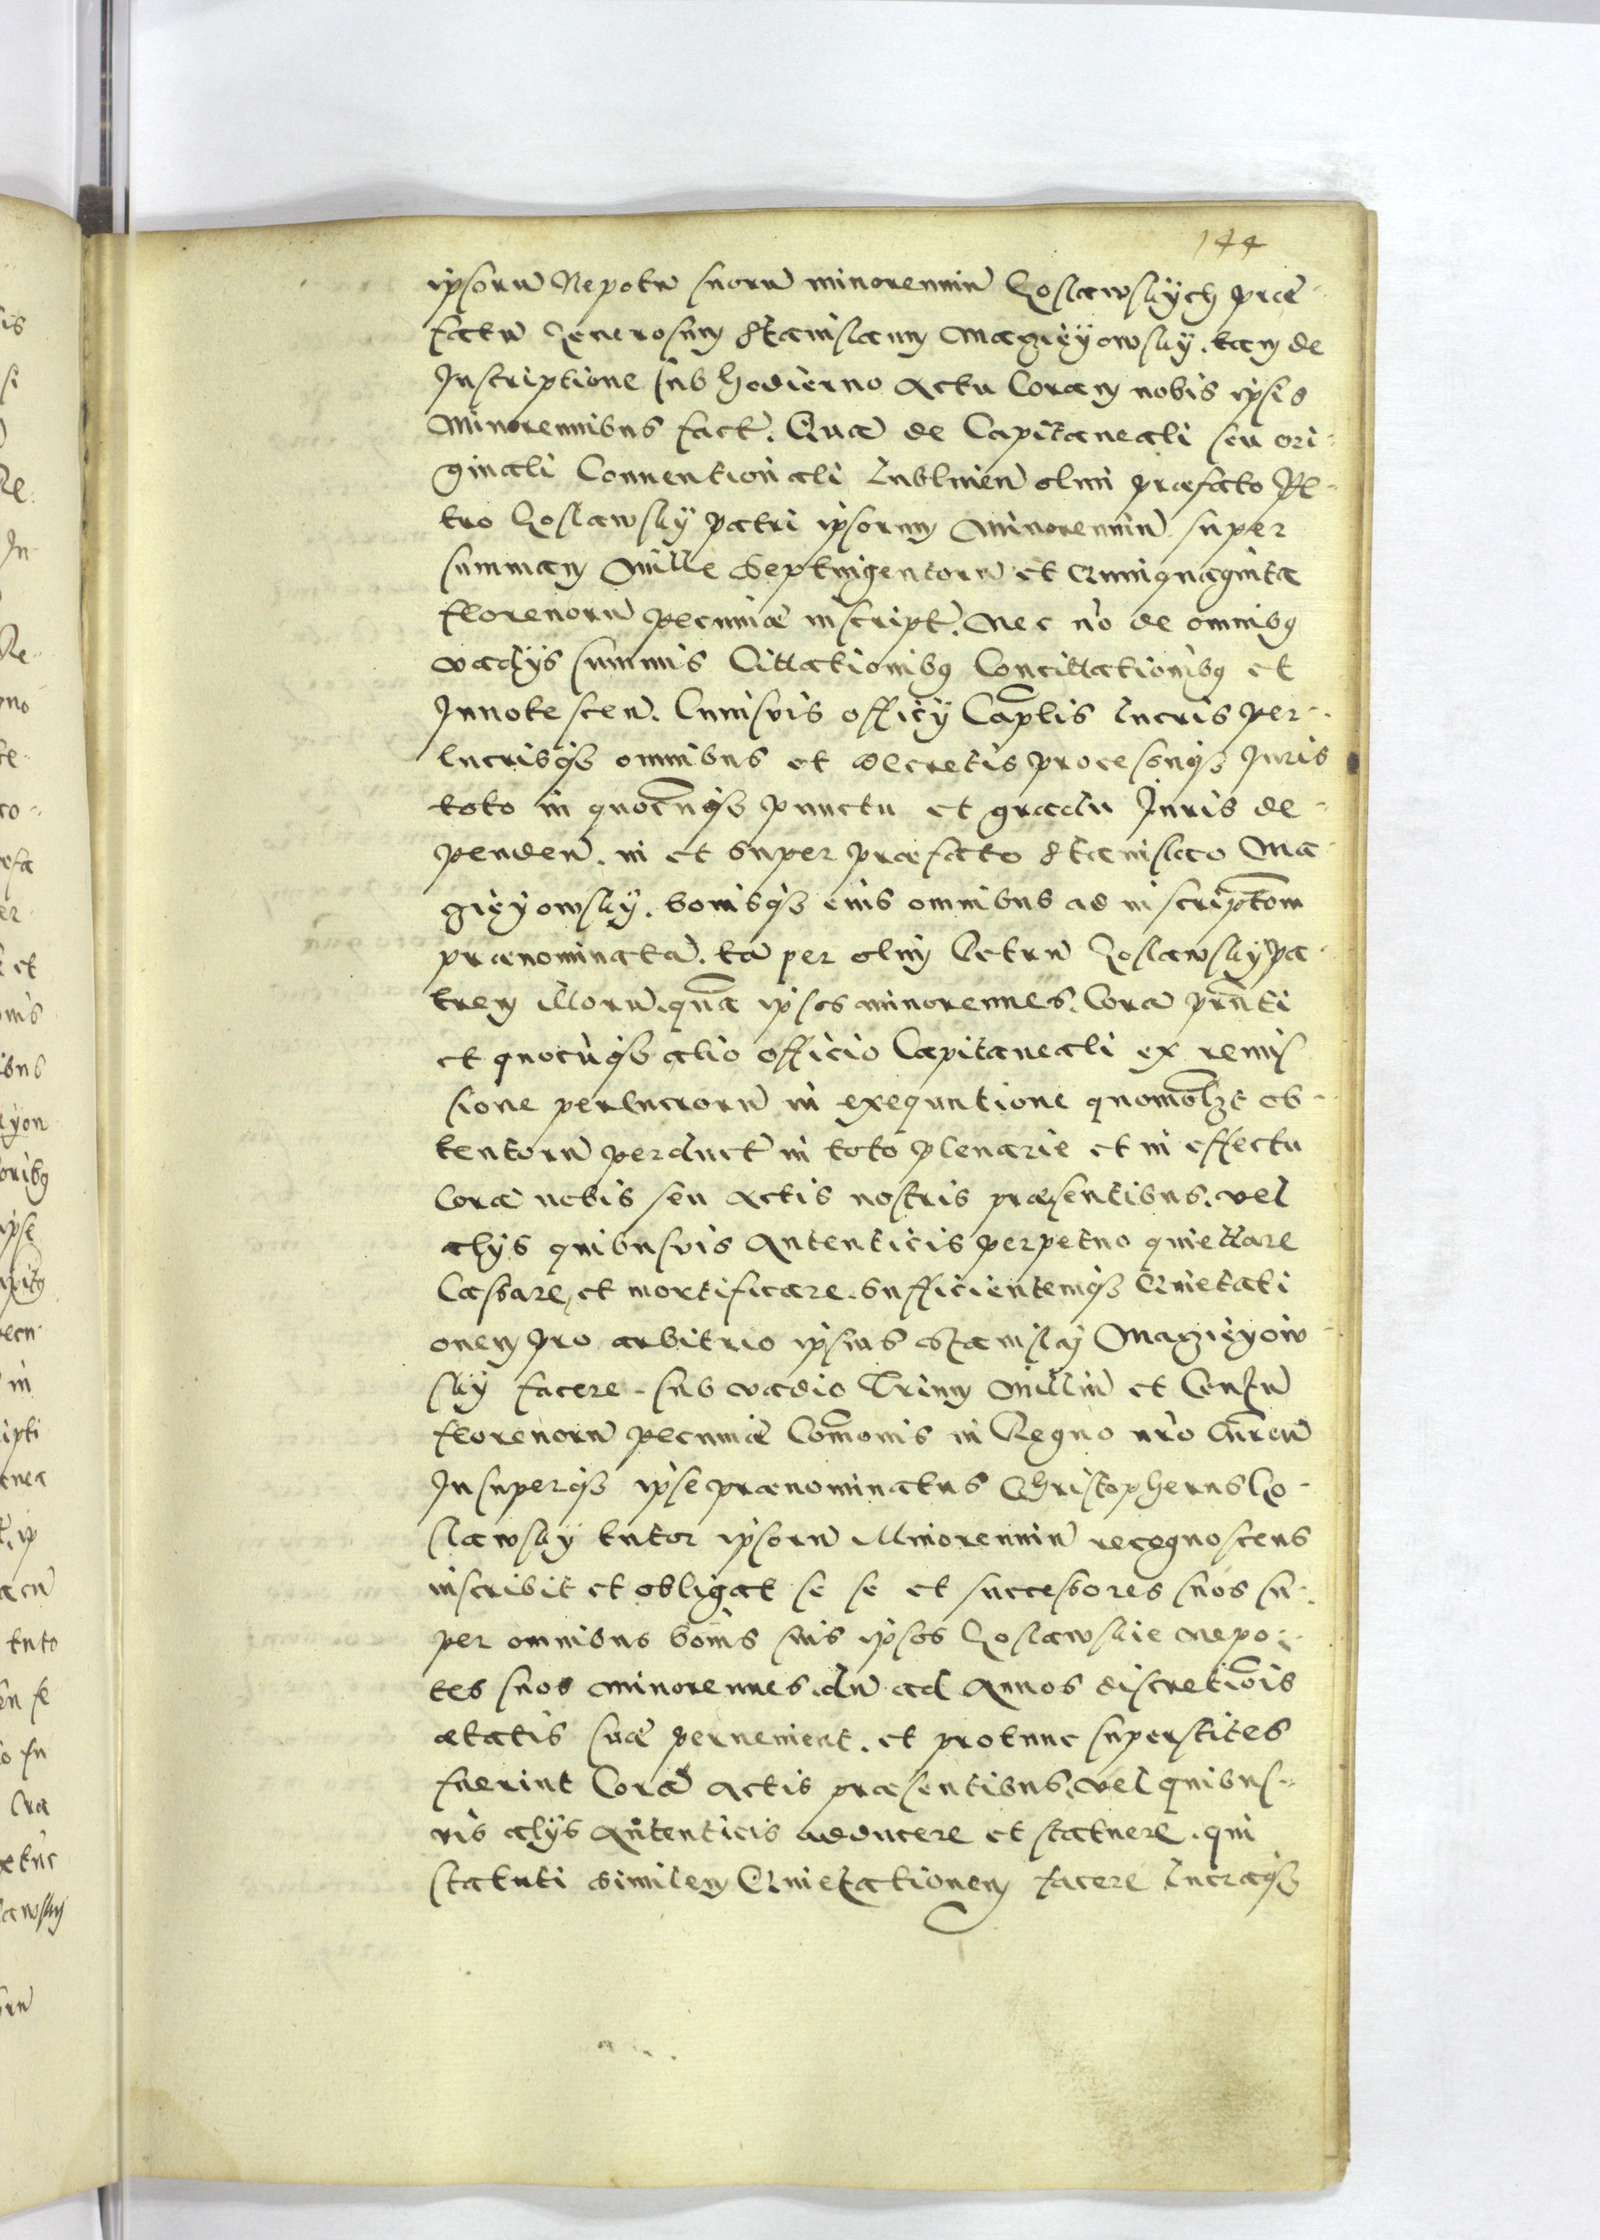 144
ipsorū Nepotū suorū minorenniū Koslawskych præ-
fatū Generosum Stanislaum Magieyowsky. tam de
Inscriptione sub hodierno Actu Coram nobis ipsis
Minorennibus fact. Quā de Capitaneali seu ori-
ginali Conuentionali Lublinen̄ olim præfato Pe-
tro Koslawsky patri ipsorum Minorenniū super
summam Mille Septuigentorū et Quinquaginta
florenorū pecuniæ inscript. Nec nō de omnibꝯ
vadijs summis Cittationibꝯ Concittationibꝯ et
Innotescen̄. Cuiusvis officij Cap̄tlis lucris per-
lucrisqꝫ omnibus et decretis processuqꝫ Juris
toto in quocūqꝫ punctu et gradu Juris de-
penden̄. in et super præfato Stanislao Ma-
gieyowsky. bonisqꝫ eius omnibus ad inscriptōm
prænominatā. tā per olim Petrū Koslawsky pa-
trem illorū. quā ipsos minorennes. Corā pn̄ti
et quocūqꝫ alio officio Capitaneali ex remis
sione perlucrorū in exequutione quomōlꝫt ob-
tentorū perduct̄ in toto plenarie et in effectu
Corā nobis seu Actis nostris præsentibus. vel
alijs quibusvis Autenticis perpetuo quiettare
Cassare, et mortificare. sufficientemqꝫ Quietati
onem pro arbitrio ipsius Stanislaj Magieyow-
sky facere - sub vadio Trium Milliū et Centū
florenorū pecuniæ Com̄onis in Regno nr̄o Curen̄
Insuperqꝫ ipse prænominatus Christopherus Ko-
slawsky tutor ipsorū Minorenniū recognoscens
inscribit et obligat se se et successores suos su-
per omnibus bonis suis ipsos Koslawskie Nepo-
tes suos minorennes. dū ad Annos discretiōis
ætatis suæ peruenient. et protunc superstites
fuerint Corā Actis præsentibus. vel quibus-
vis alijs Autenticis adducere et statuere. qui
statuti similem Quietationem facere lucraqꝫ